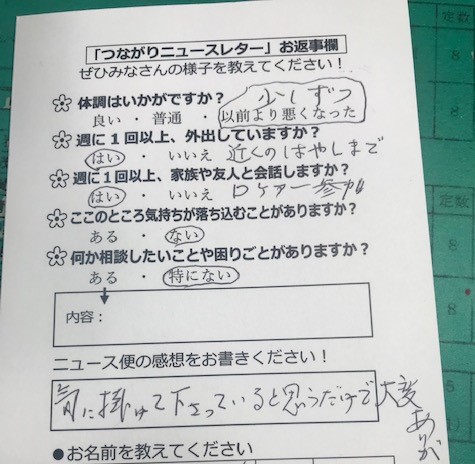 「つながりニュースレター」お返事欄
ぜひみなさんの様子を教えてください！
体調はいかがですか？ 少しずつ
良い ・ 普通 ・ 以前より悪くなった
週に１回以上、外出していますか？
はい ・ いいえ 近くのはやしまで
週に１回以上、家族や友人と会話しますか？
はい ・ いいえ ロケアー参加
ここのところ気持ちが落ち込むことがありますか？
ある ・ ない
何か相談したいことや困りごとがありますか？
ある ・ 特にない
内容：
ニュース便の感想をお書きください！
気に掛けて下さっていると思うだけで大変
ありが
●お名前を教えてください
定数
8
8
定数
8
8